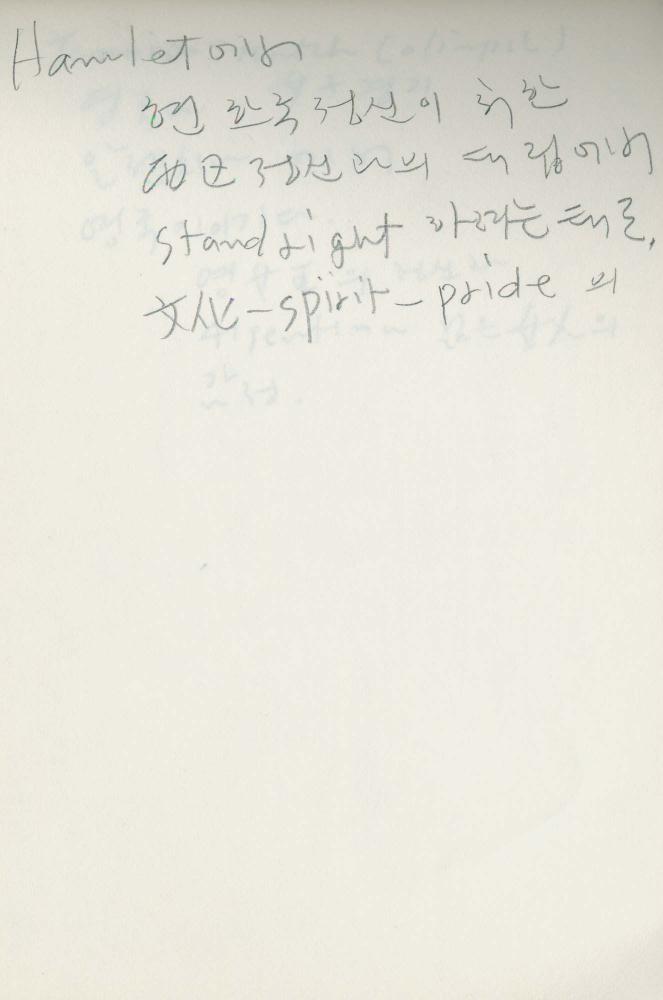 Hamlet에서
현 한국정신이 취한
西区정신과의 대립에서
stand right 하려는 태도,
文化-spirit-pride의